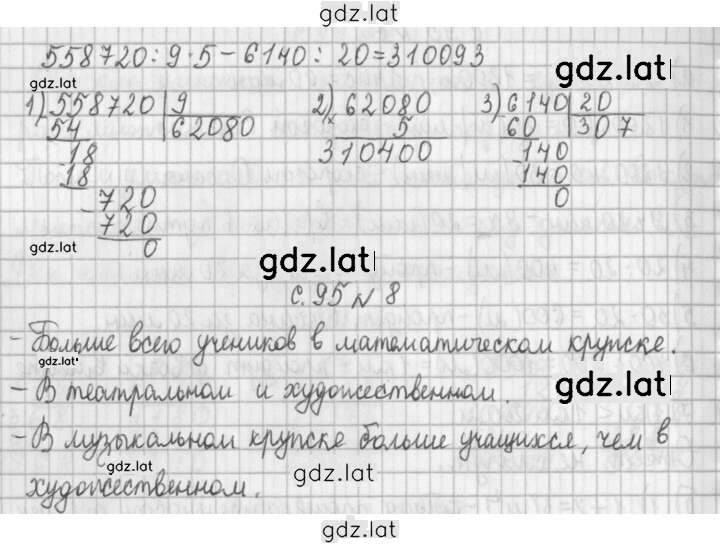 gdz.lat
558720:9·5-6140:20=310093
gdz.lat
gdz.lat
1) 558720 | 9
54 62080
18
18
720
720
0
2) 62080
× 5
310400
3) 6140 | 20
60 307
140
140
0
gdz.lat
gdz.lat
с.95 № 8
- Больше всего учеников в математическом крупске.
gdz.lat
gdz.lat
- В театральном и художественном.
- В музыкальном крупске больше учащихся, чем в
gdz.lat
художественном.
gdz.lat